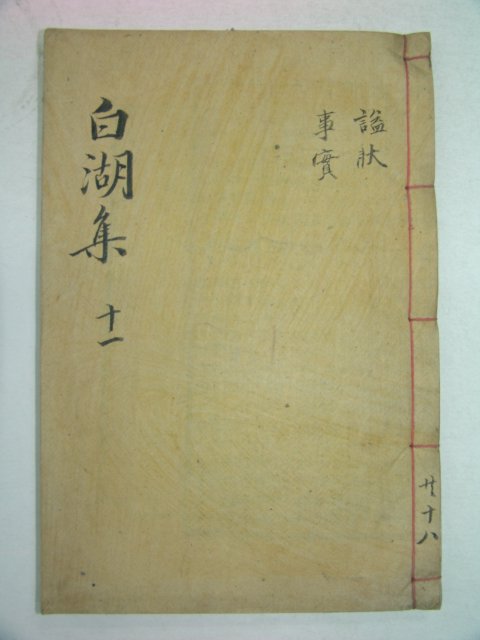 謚狀
事實
白湖集 十一
共十八